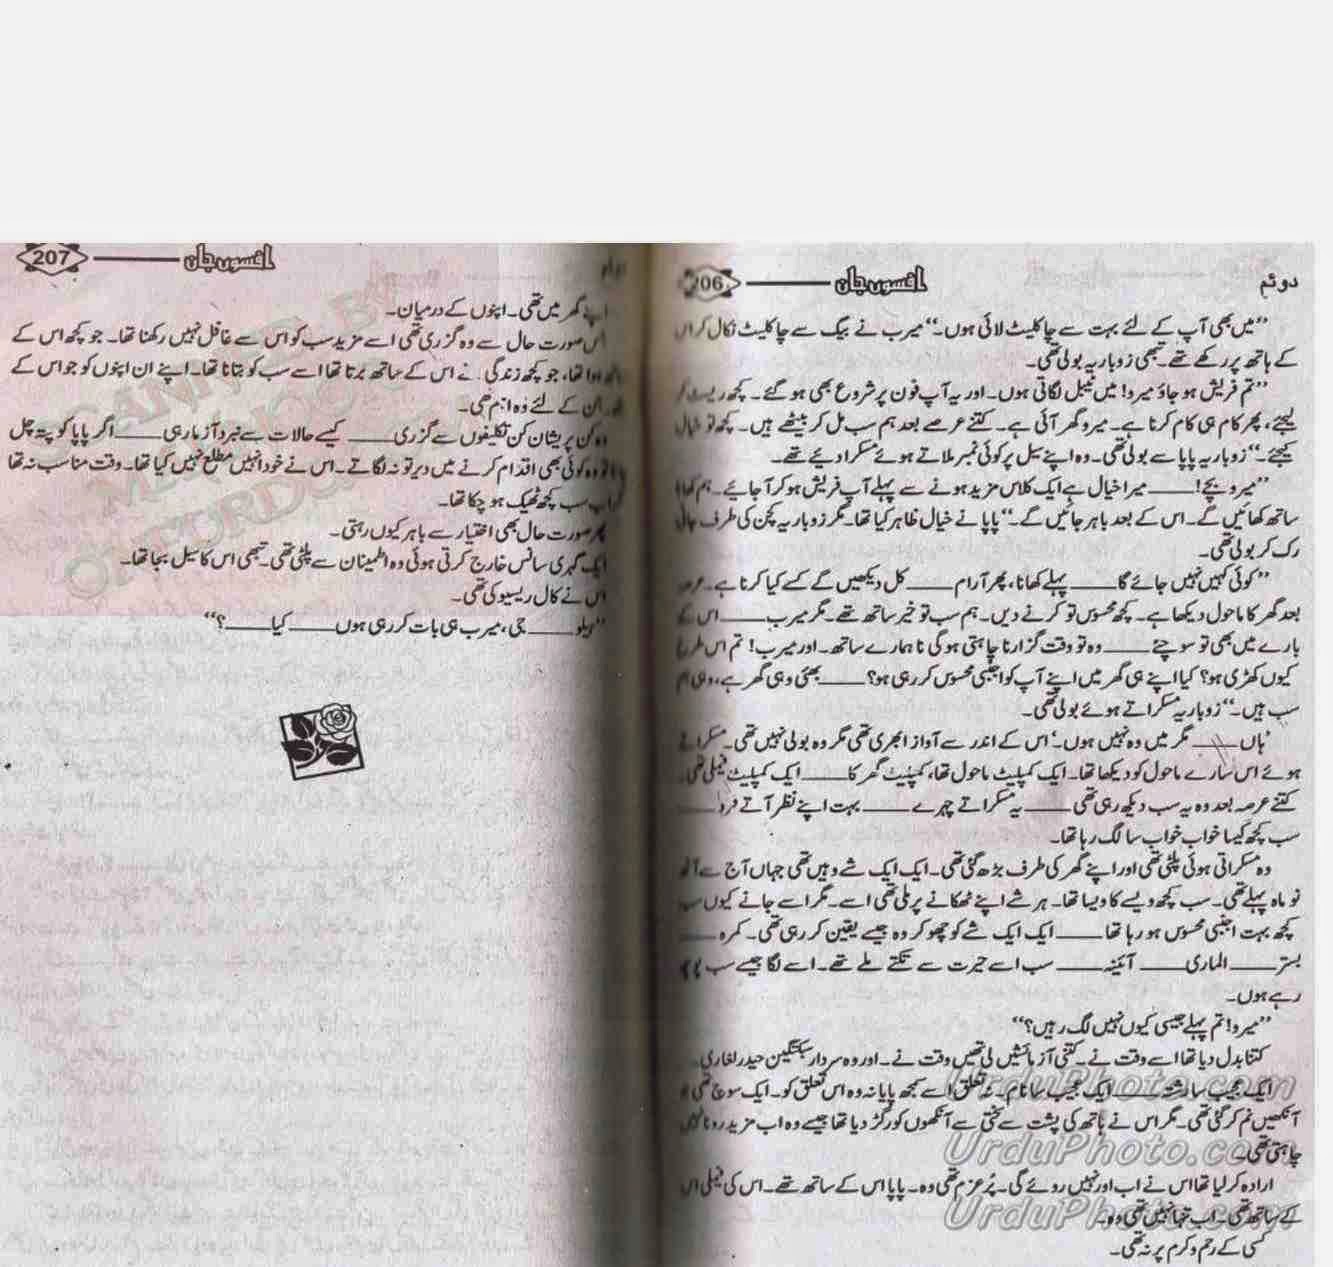 دوئم
افسوں جان
206
’’میں بھی آپ کے لئے بہت سے چاکلیٹ لائی ہوں۔‘‘ میرب نے بیگ سے چاکلیٹ نکال کر اس
کے ہاتھ پر رکھے تھے۔ تبھی زوباریہ بولی تھی۔
’’تم فریش ہو جاؤ میرو! میں ٹیبل لگاتی ہوں۔ اور یہ آپ فون پر شروع بھی ہو گئے۔ کچھ ریسٹ
لیجیے، پھر کام ہی کام کرنا ہے۔ میرو گھر آئی ہے۔ کتنے عرصے بعد ہم سب مل کر بیٹھے ہیں۔ کچھ تو خیال
کیجئے۔‘‘ زوباریہ پاپا سے بولی تھی۔ وہ اپنے سیل پر کوئی نمبر ملاتے ہوئے مسکرا دیئے تھے۔
’’میرو بچے! ــــــ میرا خیال ہے ایک کلاس مزید ہونے سے پہلے آپ فریش ہو کر آ جائیے۔ ہم کھانا
ساتھ کھائیں گے۔ اس کے بعد باہر جائیں گے۔‘‘ پاپا نے خیال ظاہر کیا تھا۔ مگر زوباریہ کچن کی طرف جاتی
رک کر بولی تھی۔
’’کوئی کہیں نہیں جائے گا ــــــ پہلے کھانا، پھر آرام ــــــ کل دیکھیں گے کسے کیا کرنا ہے۔ عرصہ
بعد گھر کا ماحول دیکھا ہے۔ کچھ محسوس تو کرنے دیں۔ ہم سب تو خیر ساتھ تھے۔ مگر میرب ــــــ اس کے
بارے میں بھی تو سوچئے ــــــ وہ تو وقت گزارنا چاہتی ہو گی نا ہمارے ساتھ۔ اور میرب! تم اس طرح
کیوں کھڑی ہو؟ کیا اپنے ہی گھر میں اپنے آپ کو اجنبی محسوس کر رہی ہو؟ ــــــ بھئی وہی گھر ہے، وہی ہم
سب ہیں۔‘‘ زوباریہ مسکراتے ہوئے بولی تھی۔
’ہاں ــــــ مگر میں وہ نہیں ہوں۔‘ اس کے اندر سے آواز ابھری تھی مگر وہ بولی نہیں تھی۔ مسکراتے
ہوئے اس سارے ماحول کو دیکھا تھا۔ ایک کمپلیٹ ماحول تھا، کمپلیٹ گھر کا ــــــ ایک کمپلیٹ فیملی تھی۔
کتنے عرصہ بعد وہ یہ سب دیکھ رہی تھی ــــــ یہ مسکراتے چہرے ــــــ بہت اپنے نظر آتے فرد ــــــ
سب کچھ کیسا خواب خواب سا لگ رہا تھا۔
وہ مسکراتی ہوئی پلٹی تھی اور اپنے گھر کی طرف بڑھ گئی تھی۔ ایک ایک شے وہیں تھی جہاں آج سے آٹھ
نو ماہ پہلے تھی۔ سب کچھ ویسے کا ویسا تھا۔ ہر شے اپنے ٹھکانے پر ملی تھی اسے۔ مگر اسے جانے کیوں سب
کچھ بہت اجنبی محسوس ہو رہا تھا ــــــ ایک ایک شے کو چھو کر وہ جیسے یقین کر رہی تھی۔ کمرہ ــــــ
بستر ــــــ الماری ــــــ آئینہ ــــــ سب اسے حیرت سے تکتے ملے تھے۔ اسے لگا جیسے سب
رہے ہوں۔
’’میرو! تم پہلے جیسی کیوں نہیں لگ رہیں؟‘‘
کتنا بدل دیا تھا اسے وقت نے۔ کتنی آزمائشیں لی تھیں وقت نے۔ اور وہ سردار سبکتگین حیدر لغاری۔
ایک عجیب سا رشتہ ــــــ ایک عجیب سا نام۔ نہ تعلق اسے سمجھ پایا نہ وہ اس تعلق کو۔ ایک سوچ تھی
آنکھیں نم کر گئی تھی۔ مگر اس نے ہاتھ کی پشت سے سختی سے آنکھوں کو رگڑ دیا تھا جیسے وہ اب مزید رونا نہیں
چاہتی تھی۔
ارادہ کر لیا تھا اس نے اب اور نہیں روئے گی۔ پُرعزم تھی وہ۔ پاپا اس کے ساتھ تھے۔ اس کی فیملی اس
کے ساتھ تھی۔ اب تنہا نہیں تھی وہ۔
کسی کے رحم و کرم پر نہ تھی۔
UrduPhoto.com
UrduPhoto.com
UrduPhoto.com
افسوں جان
207
اپنے گھر میں تھی۔ اپنوں کے درمیان۔
اس صورت حال سے وہ گزری تھی اسے مزید سب کو اس سے غافل نہیں رکھنا تھا۔ جو کچھ اس کے
ہوا تھا، جو کچھ زندگی نے اس کے ساتھ برتا تھا اسے سب کو بتانا تھا۔ اپنے ان اپنوں کو جو اس کے
ان کے لئے وہ اہم تھی۔
وہ کن پریشان کن تکلیفوں سے گزری ــــــ کیسے حالات سے نبرد آزما رہی ــــــ اگر پاپا کو پتہ چل
تو وہ کوئی بھی اقدام کرنے میں دیر تو نہ لگاتے۔ اس نے خود انہیں مطلع نہیں کیا تھا۔ وقت مناسب نہ تھا
اب سب کچھ ٹھیک ہو چکا تھا۔
پھر صورت حال بھی اختیار سے باہر کیوں رہتی۔
ایک گہری سانس خارج کرتی ہوئی وہ اطمینان سے پلٹی تھی۔ تبھی اس کا سیل بجا تھا۔
اس نے کال ریسیو کی تھی۔
’’ہیلو ــــــ جی، میرب ہی بات کر رہی ہوں ــــــ کیا ــــــ؟‘‘